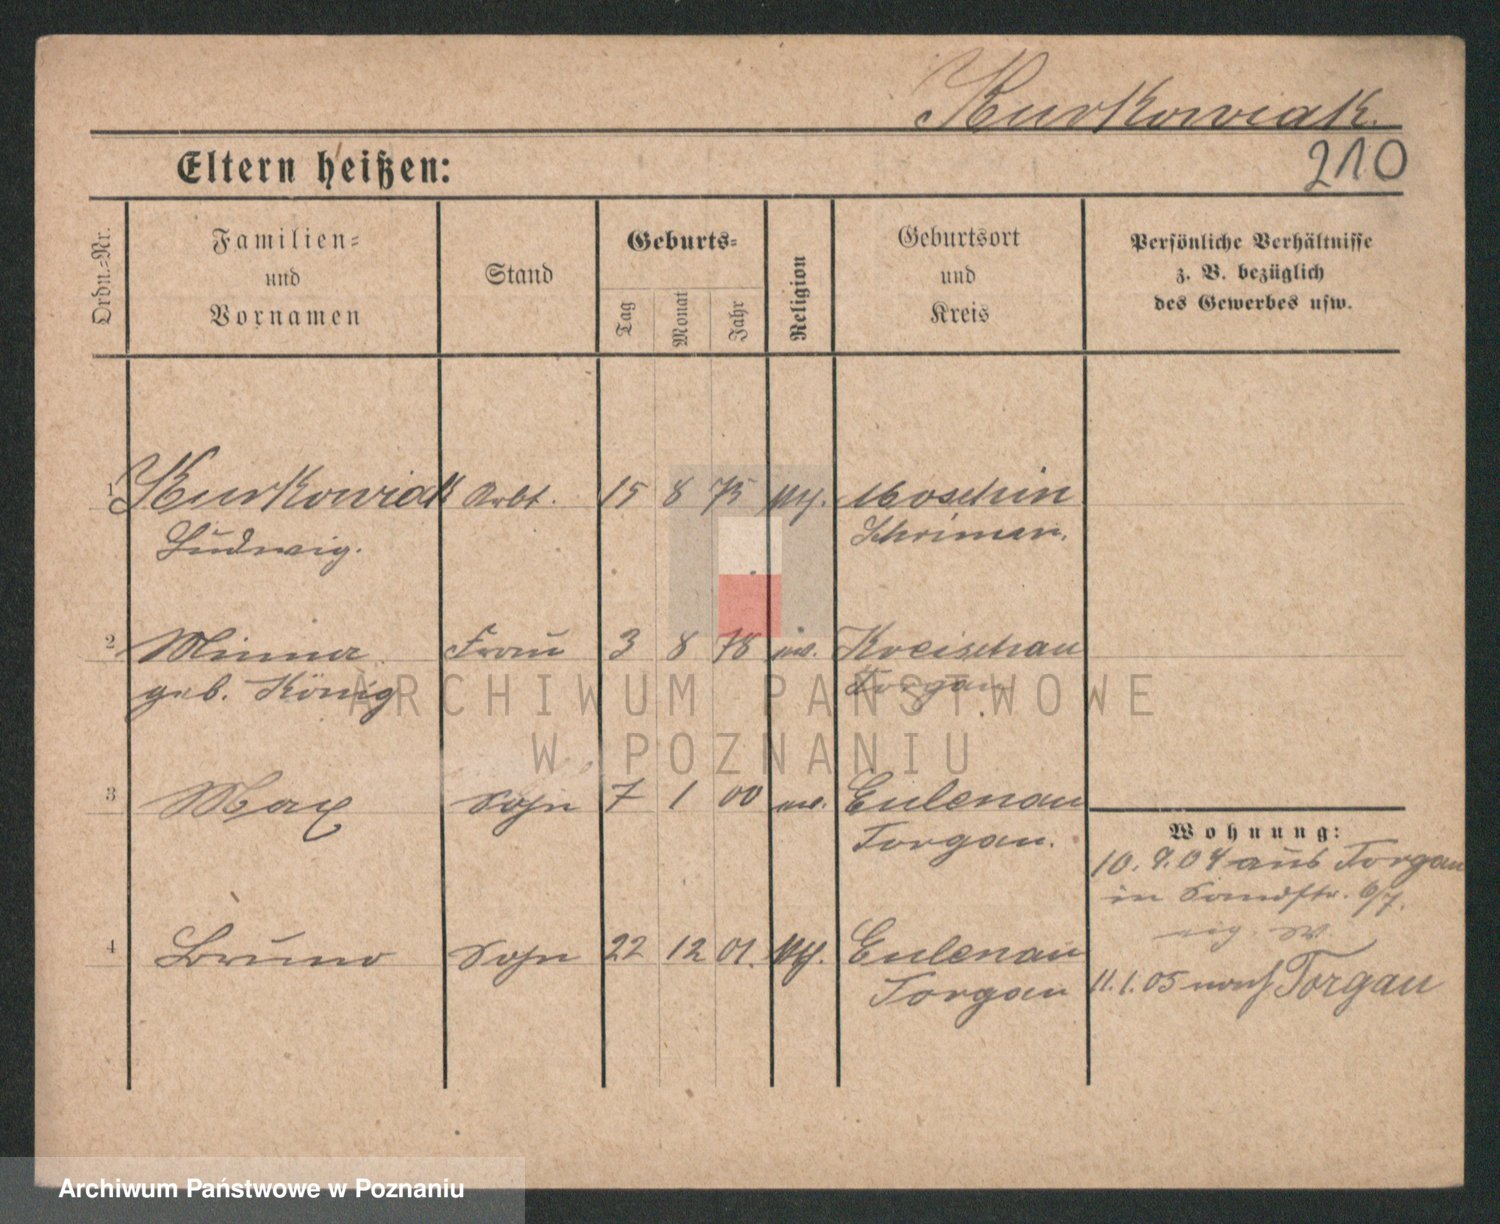 Kurkowiak.
Eltern heißen:
210
Ordn.-Nr.
Familien-
und
Vornamen
Stand
Geburts-
Tag
Monat
Jahr
Religion
Geburtsort
und
Kreis
Persönliche Verhältnisse
z. B. bezüglich
des Gewerbes usw.
1 Kurkowiak Arbt. 15 8 75 Moschin
Ludwig. Schrimm.
2 Minna Frau 3 8 78 Kreischau
geb. König Torgau.
3 Max Sohn 7 1 00 Eulenau
Torgau.
Wohnung:
10. 9. 04 aus Torgau
in Sandstr. 6/7.
4 Bruno Sohn 22 12 01. Eulenau
Torgau
11. 1. 05 nach Torgau
ARCHIWUM PAŃSTWOWE
W POZNANIU
Archiwum Państwowe w Poznaniu